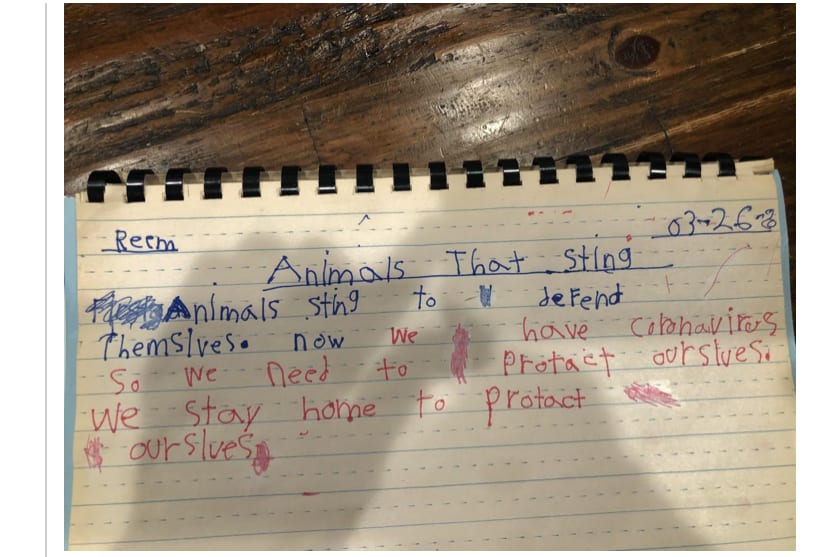 Reem
03-26-
Animals That sting
Animals sting to defend
Themslves. now we have coronavirus
So we need to protact ourslves.
We stay home to protact
ourslves.